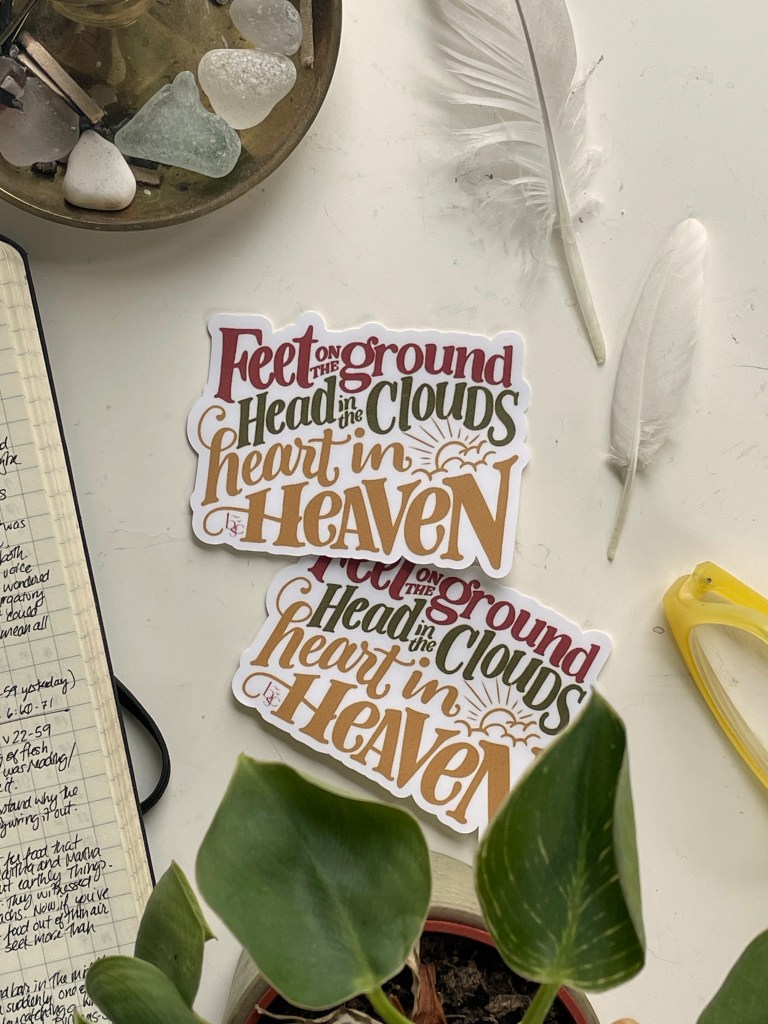 Feet ON THE ground
Head in the CLOUDS
heart in
HEAVEN
bsc
Feet ON THE ground
Head in the CLOUDS
heart in
HEAVEN
bsc
was
voice
wondered
could
mean all
-59 yesterday)
6:60-71
v 22-59
of flesh
was reading/
it.
stand why the
figuring it out.
for food that
and Mama
earthly things.
They witnessed
Now, if you've
food out of thin air
seek more than
in the
suddenly one